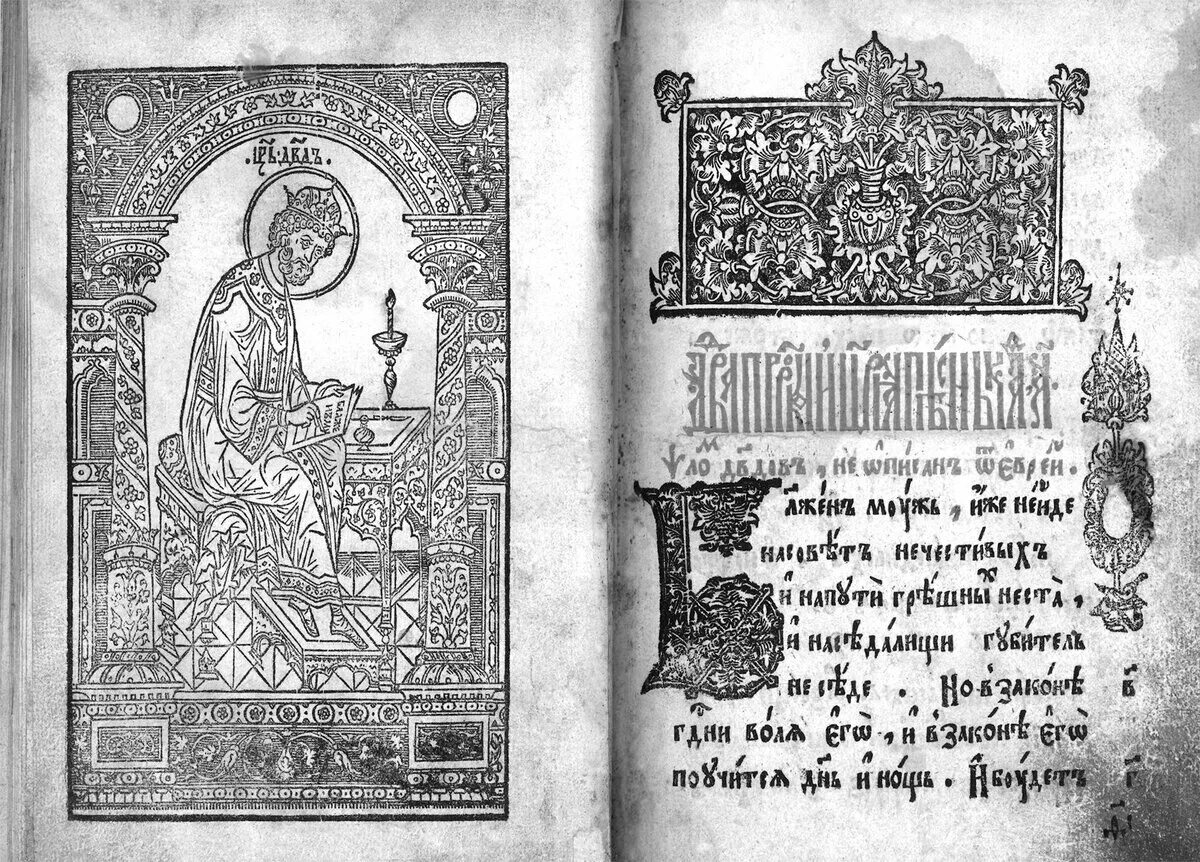 црь · двдъ
дв҃да прⷪ҇рка и цр҃ѧ пѣснь
ѱаломъ дв҃довъ, не ѡписанъ ѿ еврей .
Блаже́нъ моужь, и́же не и́де
на совѣтъ нечестивыхъ
и҆ на пути́ грѣ́шныⷯ не ста̀,
и҆ на сѣда́лищи губитель
не сѣ́де . Но в̾ зако́нѣ
гдⷭ҇ни во́лѧ є҆гѡ̀, и҆ в̾ зако́нѣ є҆гѡ̀
поучи́тсѧ дн҃ь и҆ нощь . И҆ боудетъ
в҃
г҃